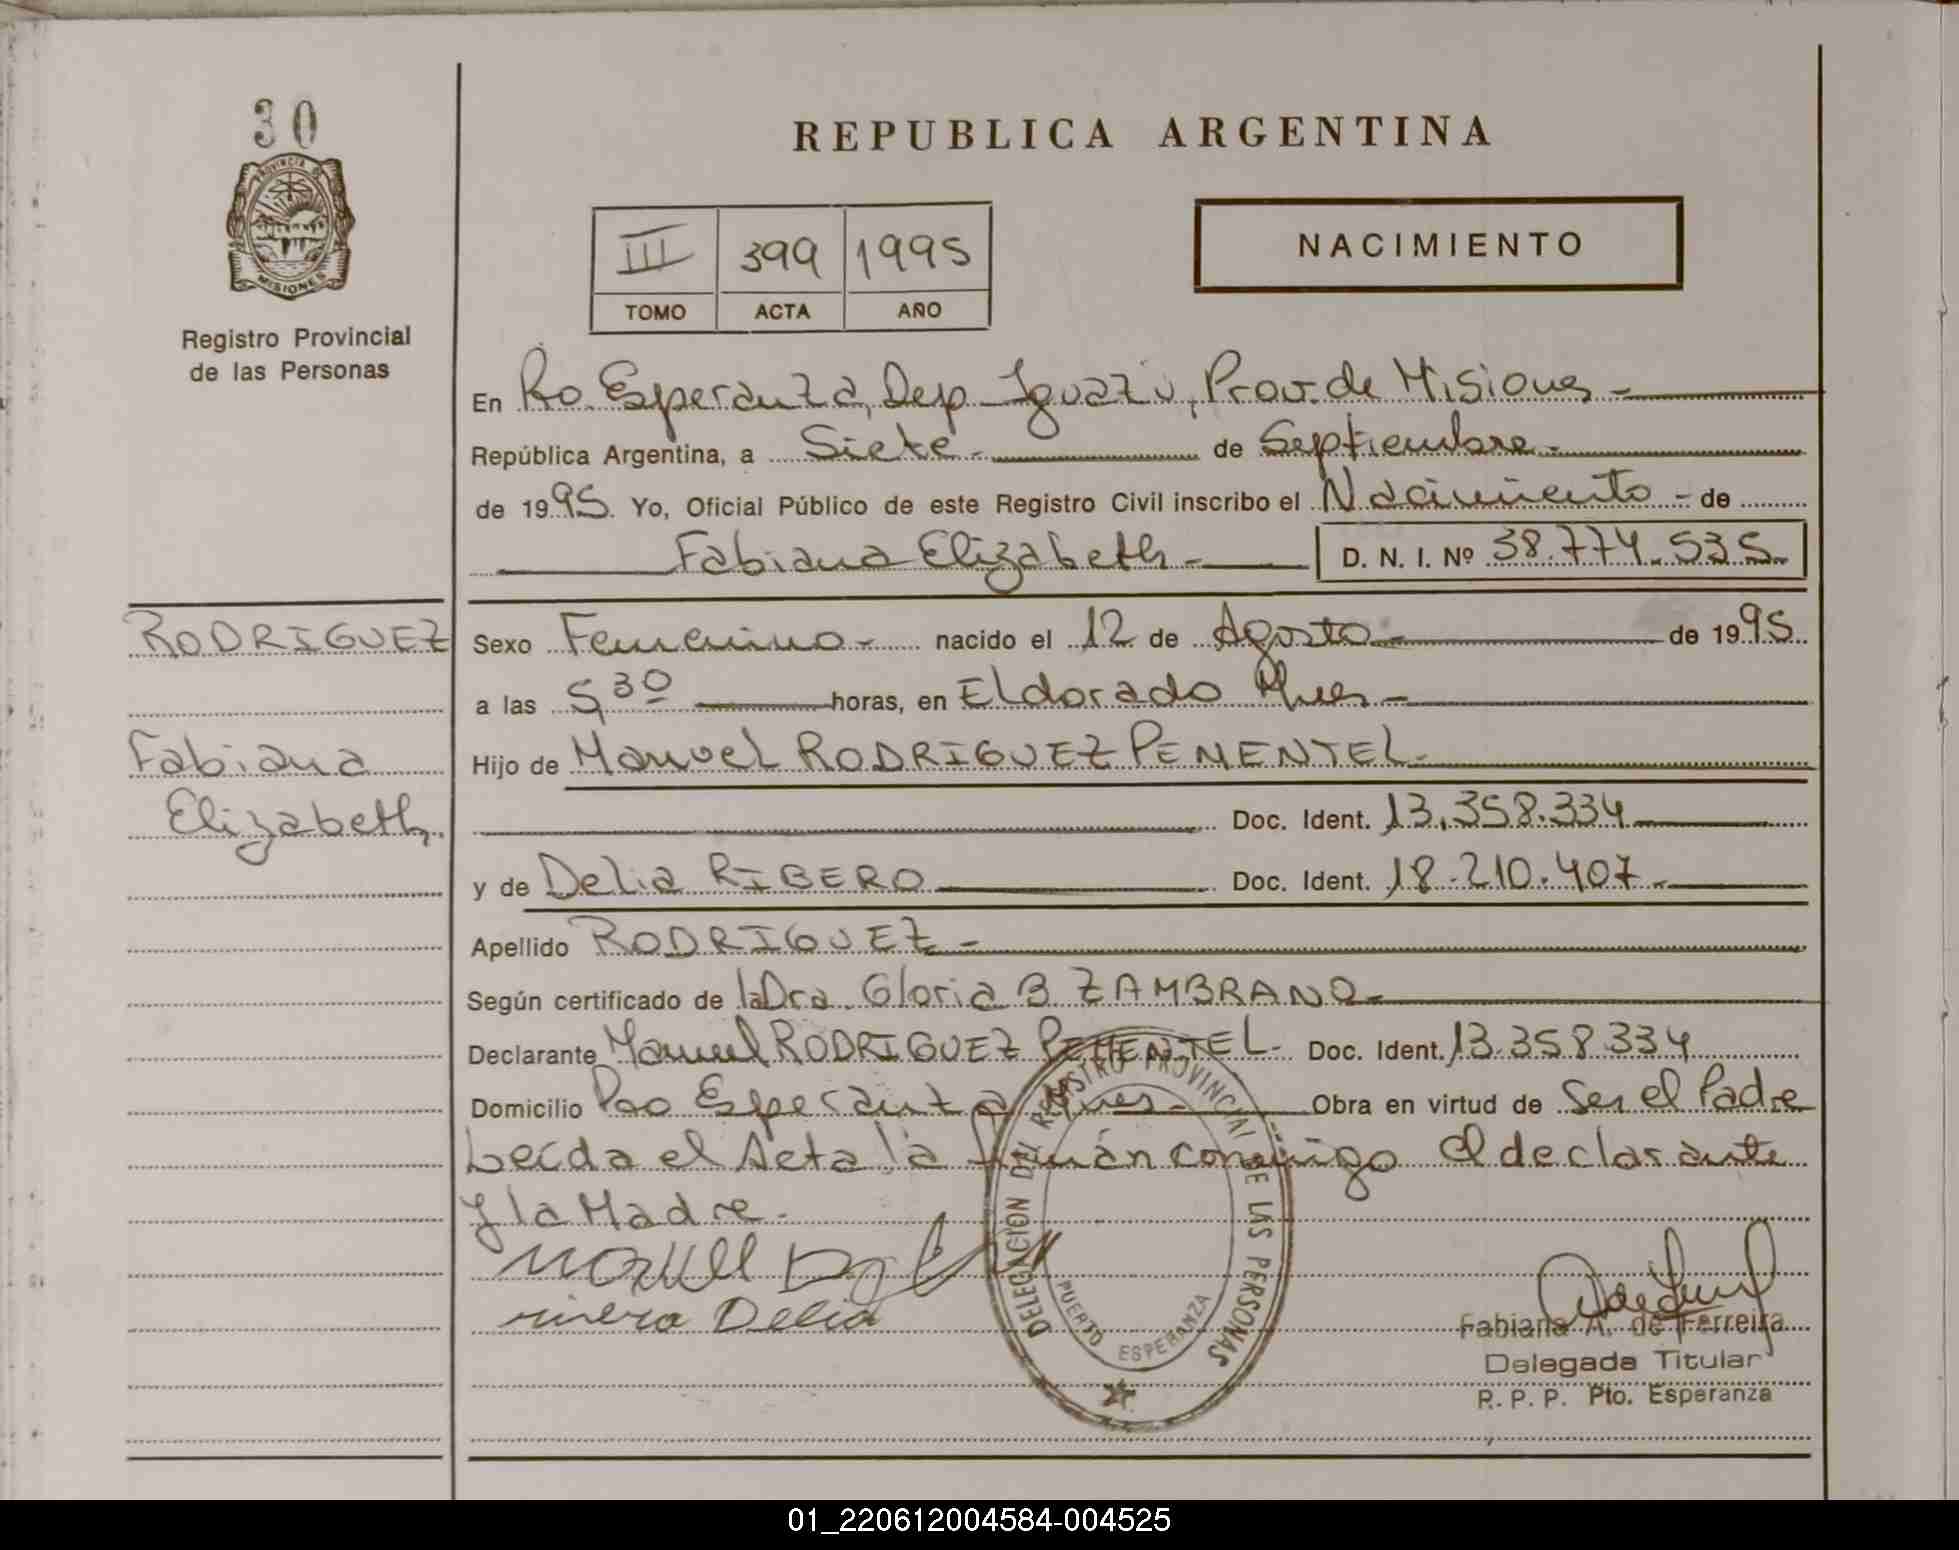 30
PROVINCIA D
MISIONES
Registro Provincial
de las Personas
REPUBLICA ARGENTINA
III 399 1995
TOMO ACTA AÑO
NACIMIENTO
En Pto. Esperanza, Dep. Iguazú, Prov. de Misiones -
República Argentina, a Siete - de Septiembre -
de 1995. Yo, Oficial Público de este Registro Civil inscribo el Nacimiento - de
Fabiana Elizabeth - D. N. I. Nº 38.774.535-
RODRIGUEZ
Fabiana
Elizabeth
Sexo Femenino - nacido el 12 de Agosto - de 1995
a las 5,30 horas, en Eldorado Mnes -
Hijo de Manuel RODRIGUEZ PEMENTEL -
Doc. Ident. 13.358.334
y de Delia RIBERO Doc. Ident. 18.210.407 -
Apellido RODRIGUEZ -
Según certificado de la Dra. Gloria B ZAMBRANO -
Declarante Manuel RODRIGUEZ PEMENTEL - Doc. Ident. 13.358.334
Domicilio Pto Esperanza Mnes - Obra en virtud de Ser el Padre
Leída el Acta la firmán conmigo el declarante
y la Madre -
rivero Delia
DELEGACION DEL REGISTRO PROVINCIAL DE LAS PERSONAS
PUERTO ESPERANZA
Fabiana A. de Ferreira
Delegada Titular
R. P. P. Pto. Esperanza
01_220612004584-004525